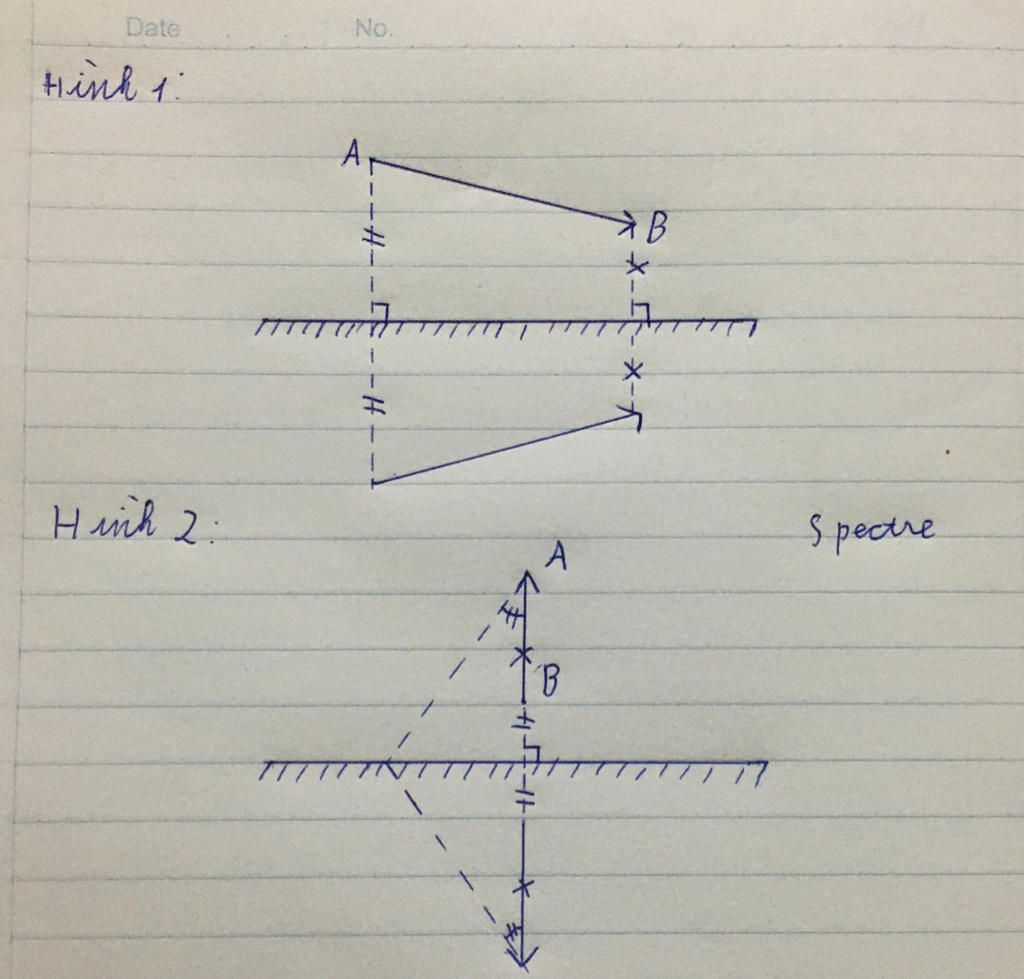 Date No.
Hình 1:
A
B
Hình 2:
Spectre
A
B